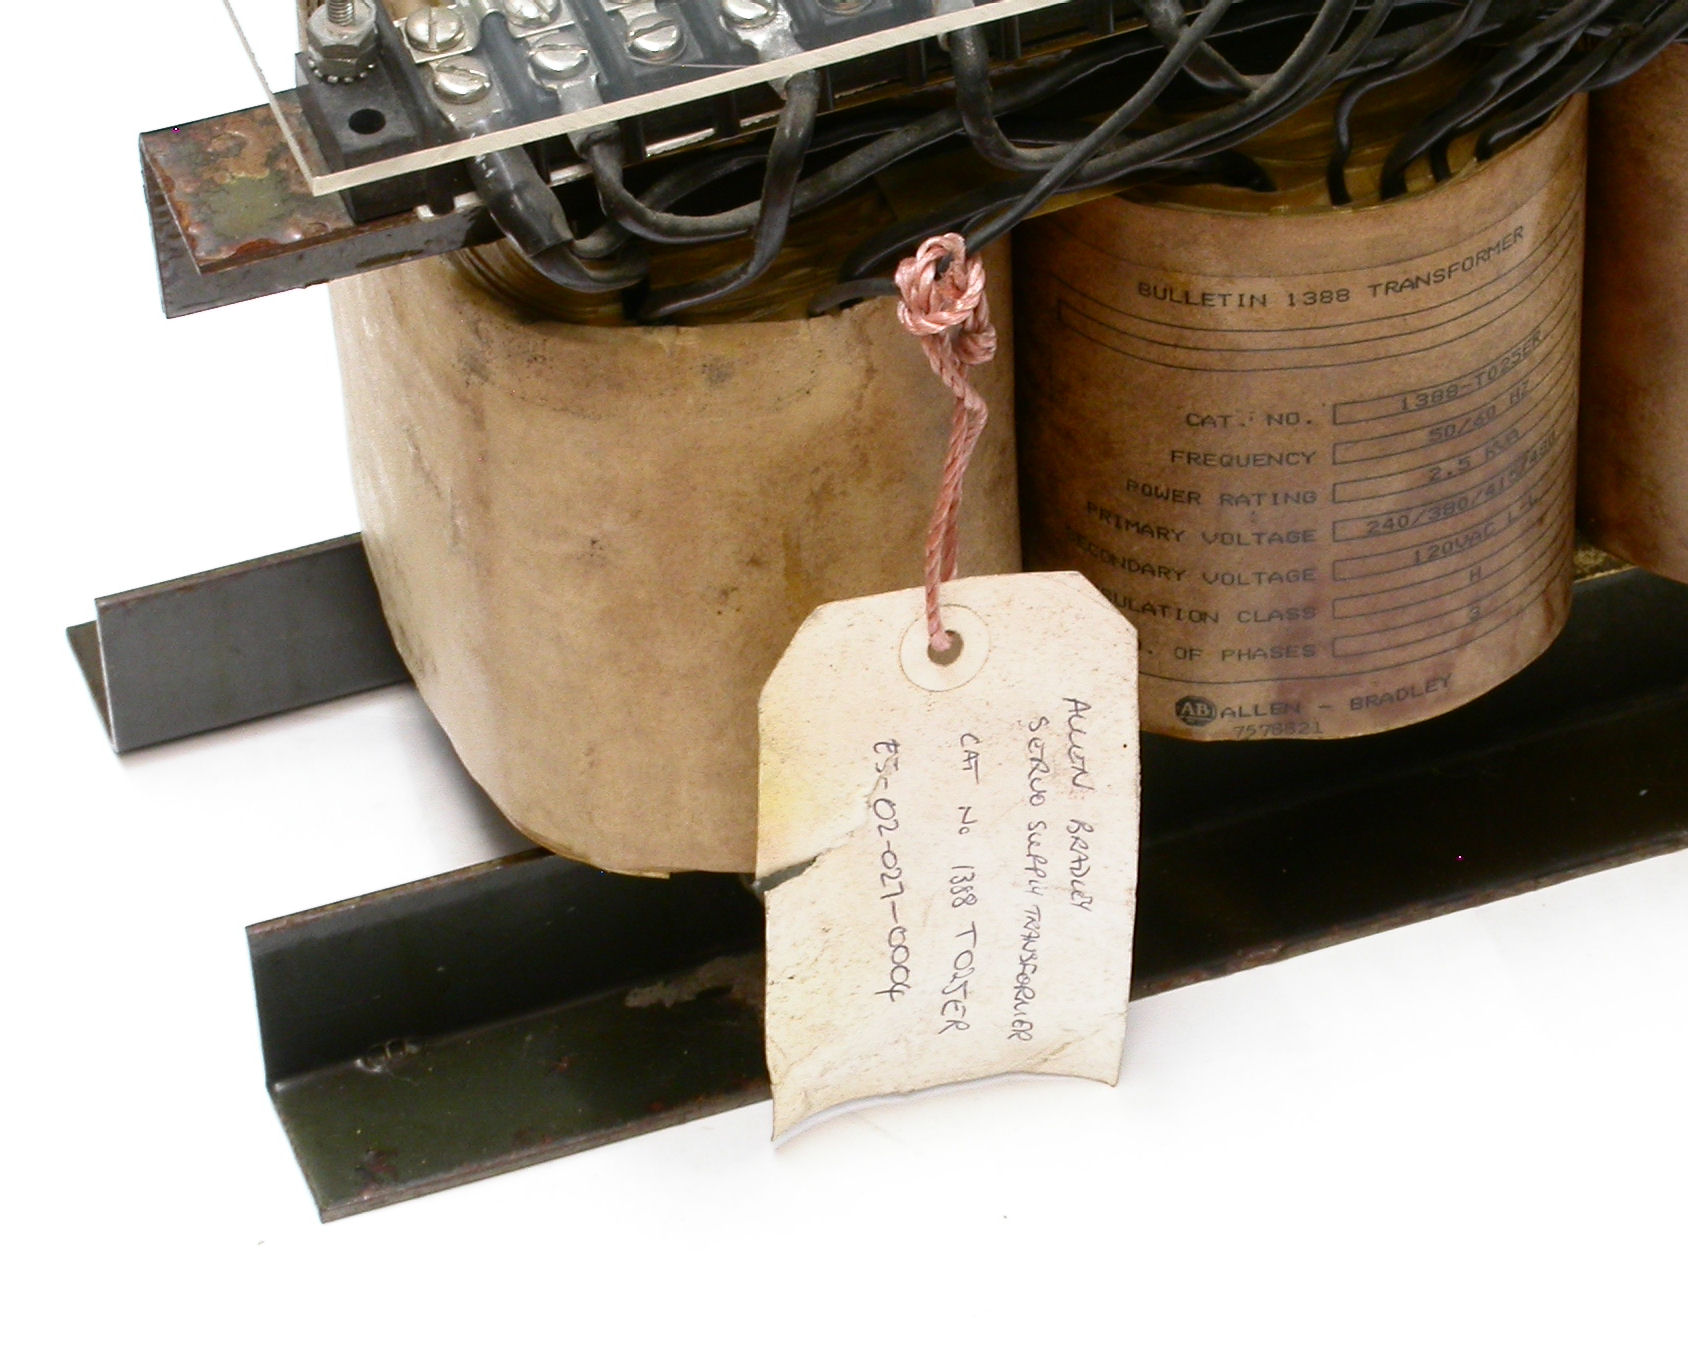 BULLETIN 1388 TRANSFORMER
CAT. NO. 1388-T025ER
FREQUENCY 50/60 HZ
POWER RATING 2.5 KVA
PRIMARY VOLTAGE 240/380/415/480
ECONDARY VOLTAGE 120VAC L-L
ULATION CLASS H
. OF PHASES 3
AB ALLEN - BRADLEY
7578821
ALLEN BRADLEY
SERVO SUPPLY TRANSFORMER
CAT No 1388 T025ER
E5-02-027-0004